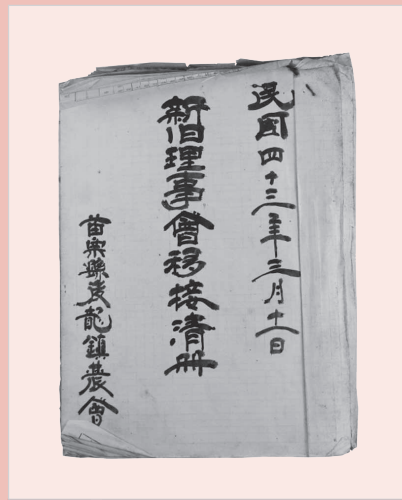 民國四十三年三月十一日
新旧理事會移接清册
苗栗縣後龍鎮農會